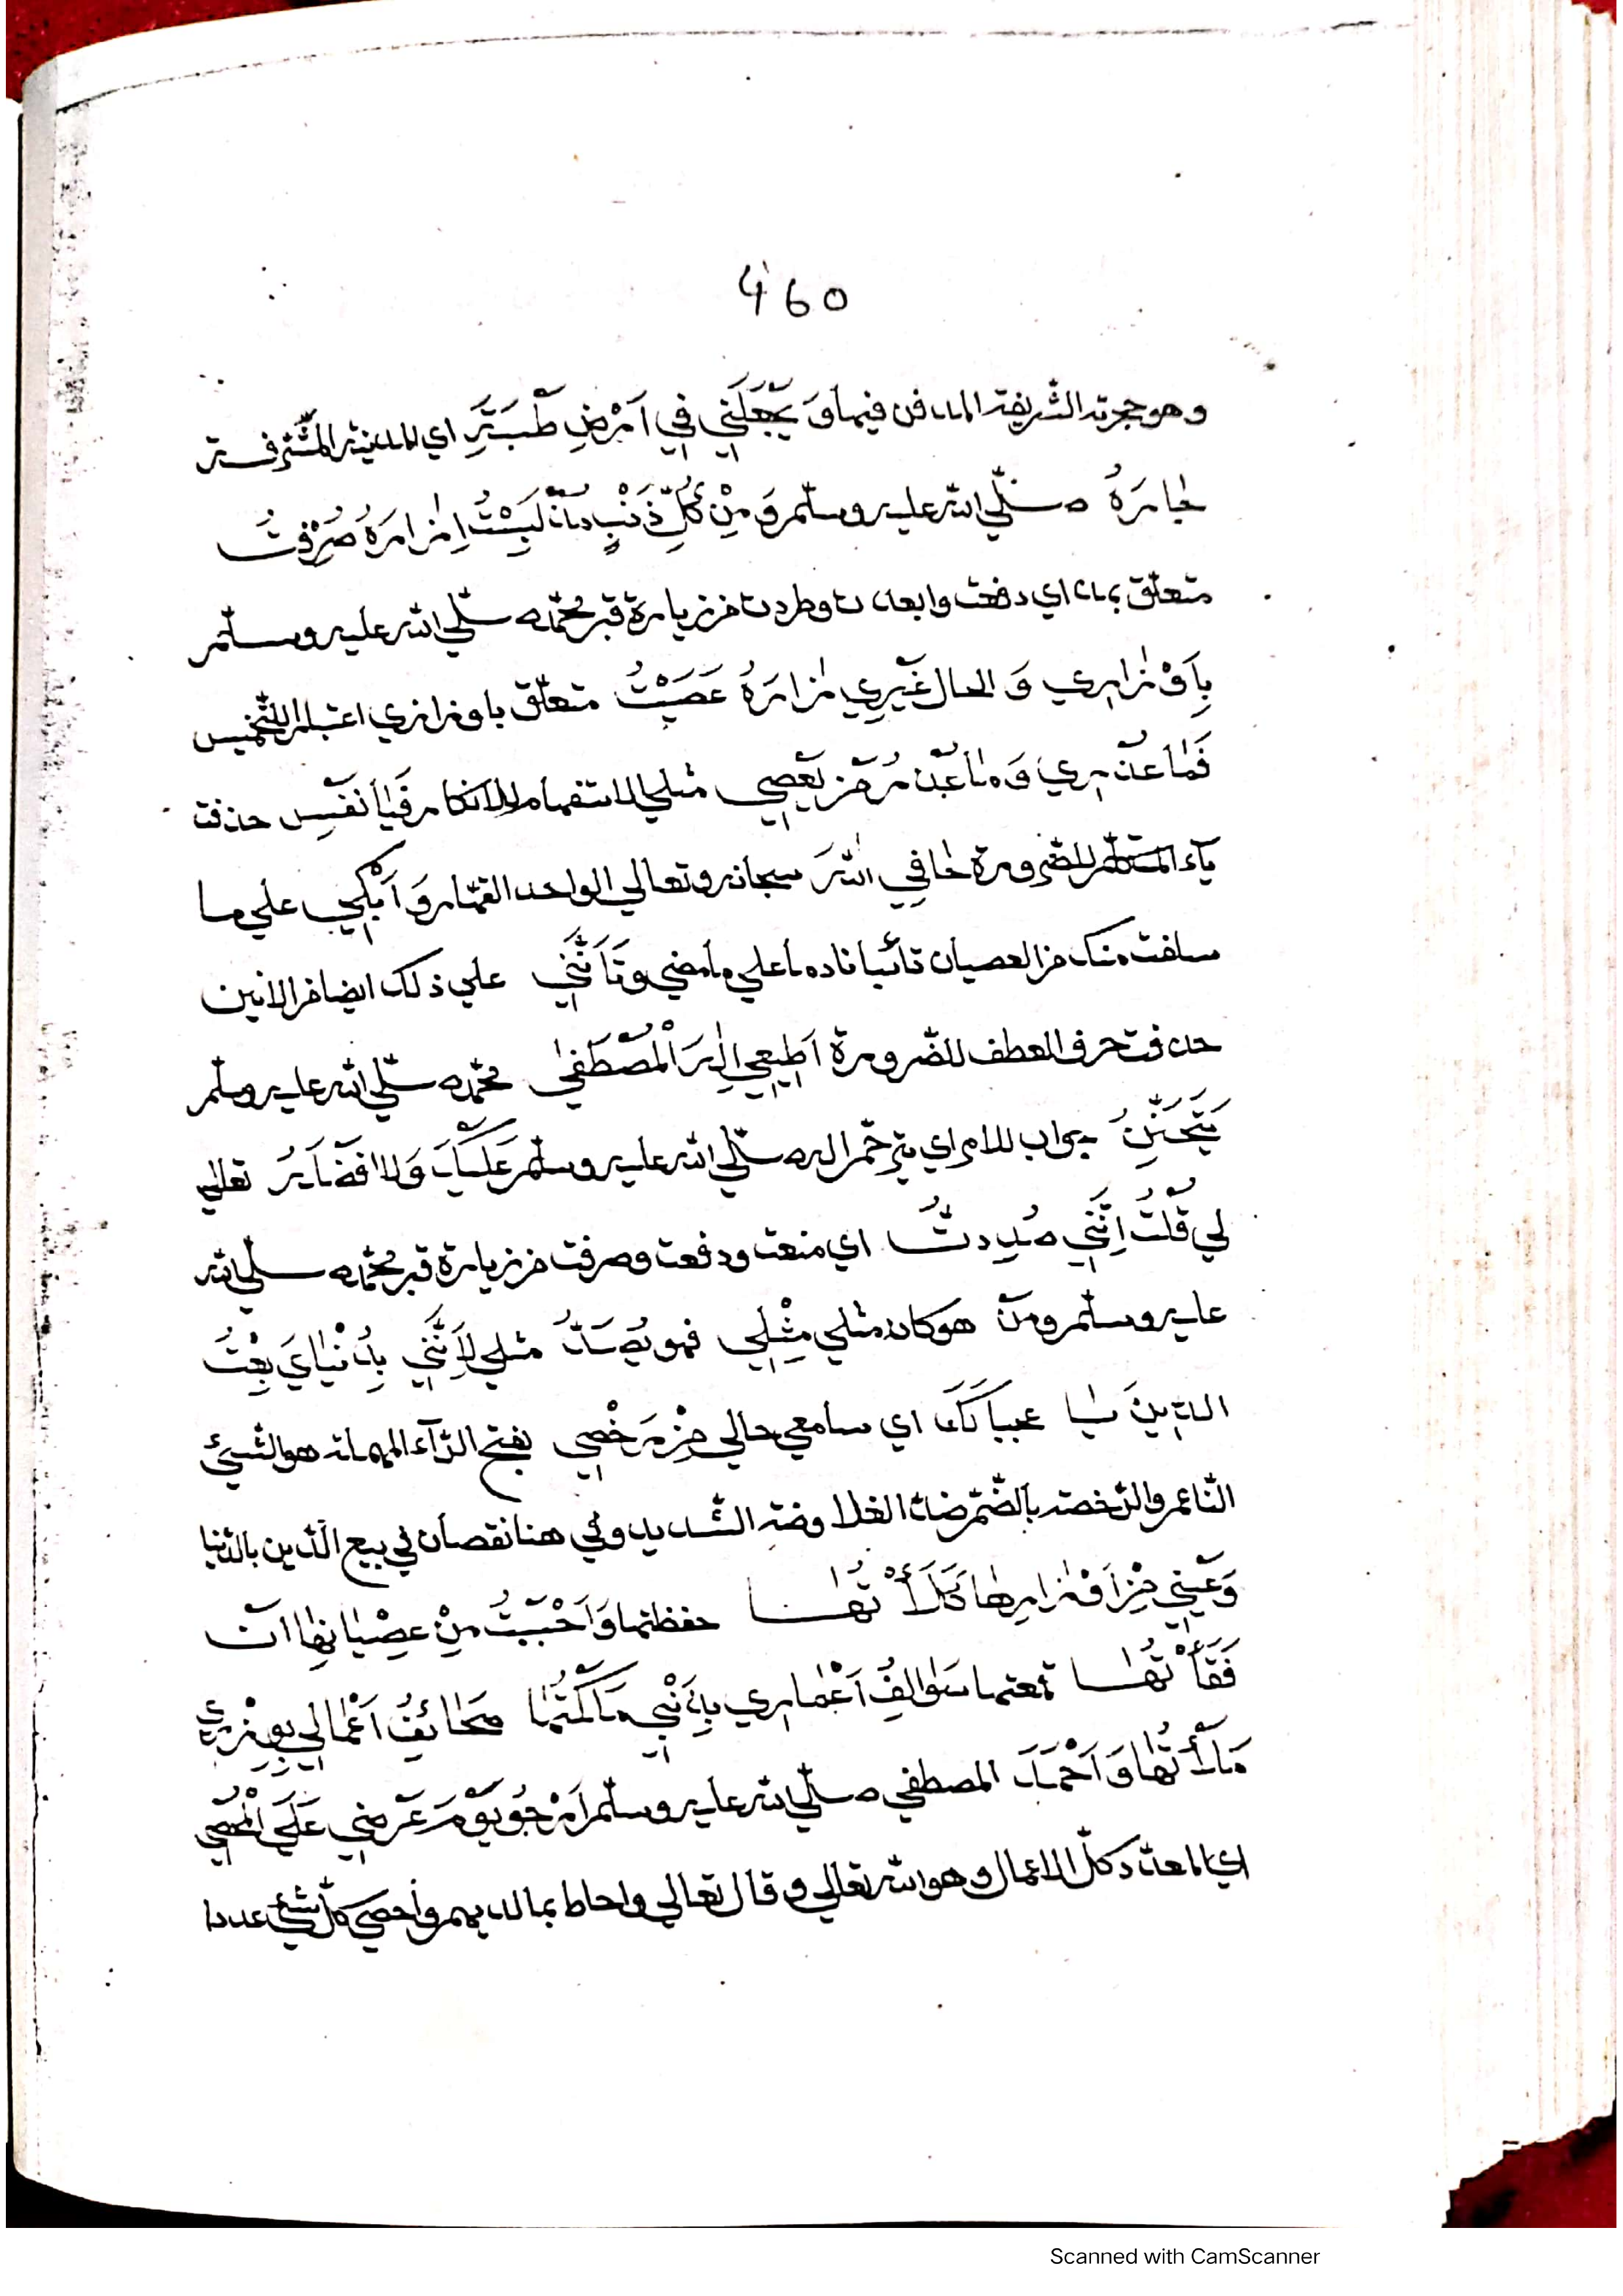 460
وهو حجرته الشريفة المدفن فيها وَيَجْعَلَنِي فِي اَرْضِ طَيْبَةِ اي المدينة المشرفة
جَارَهُ صلّي الله عليه وسلّم وَمِنْ كُلِّ ذَنْبٍ قَدْ لَبِسْتُ اِزَارَهُ صُرِفْتُ
متعلّق بما اي دفعت وابعدت وطردت من زيارة قبر محمّد صلّي الله عليه وسلّم
بِاَوْزَارِي وَ الحال غَيْرِي زَارَهُ عَصَيْتُ متعلّق باوزاري التخميس
فَمَا عُذْرِي وَمَا عُذْرُ مَنْ يَعْصِي مثلي الاستفهام للانكار فَيَا نَفْسِ حذفت
ياء المتكلم للضرورة خَافِي اللهَ سبحانه وتعالي الواحد القهّار وَ اَبْكِي علي ما
سلفت منك من العصيان تائبا نادما علي ما مضي وَتَأَنَّنِي علي ذلك ايضا من الانين
حذفت حرف العطف للضّرورة اَطِيعِي اِلٰهَ الْمُصْطَفٰي محمّد صلّي الله عليه وسلّم
يَتَحَنَّنُ جواب للامر اي يترحّم اله صلّي الله عليه وسلّم عَلَيْكِ وَلا فَضْلَ تعالي
لي قُلْتُ اِنَّنِي صُدِدتُ اي منعت ودفعت وصرفت من زيارة قبر محمّد صلّي الله
عليه وسلّم ومَنْ هو كان مثلي مِثْلِي فهو يُصَدُّ مثلي لِأَنَّنِي بِدُنْيَايَ بِعْتُ
الدِّينَ يَا عجبا لَكَ اي سامعي حالي مِنْ رَخْصِي بفتح الرّاء المهملة هو الشّيئ
النّاعم والرّخصة بالضّم ضدّ الغلا وضد الشّديد وفي هنا نقصان في بيع الدّين بالدّنيا
وَعَيْنِي مِنْ اَوْزَارِهَا كَلَأْتُهَا حفظتها وَاَحْبَبْتُ مِنْ عِصْيَانِهَا اَنْ
فَقَأْتُهَا سَوَالِفُ اَعْمَارِي بِذَنْبِي مَلَكْتُهَا صَحَائِفُ اَعْمَالِي بِوِزْرِي
مَلَأْتُهَا وَاَحْمَدَ المصطفي صلّي الله عليه وسلّم اَرْجُو يَوْمَ عَرْضِي عَلَي الْمُحْصِي
اي كلّ الاعمال وهو الله تعالي وقال تعالي واحاط بما لديهم وأحصي كلّ شيئ عددا
Scanned with CamScanner